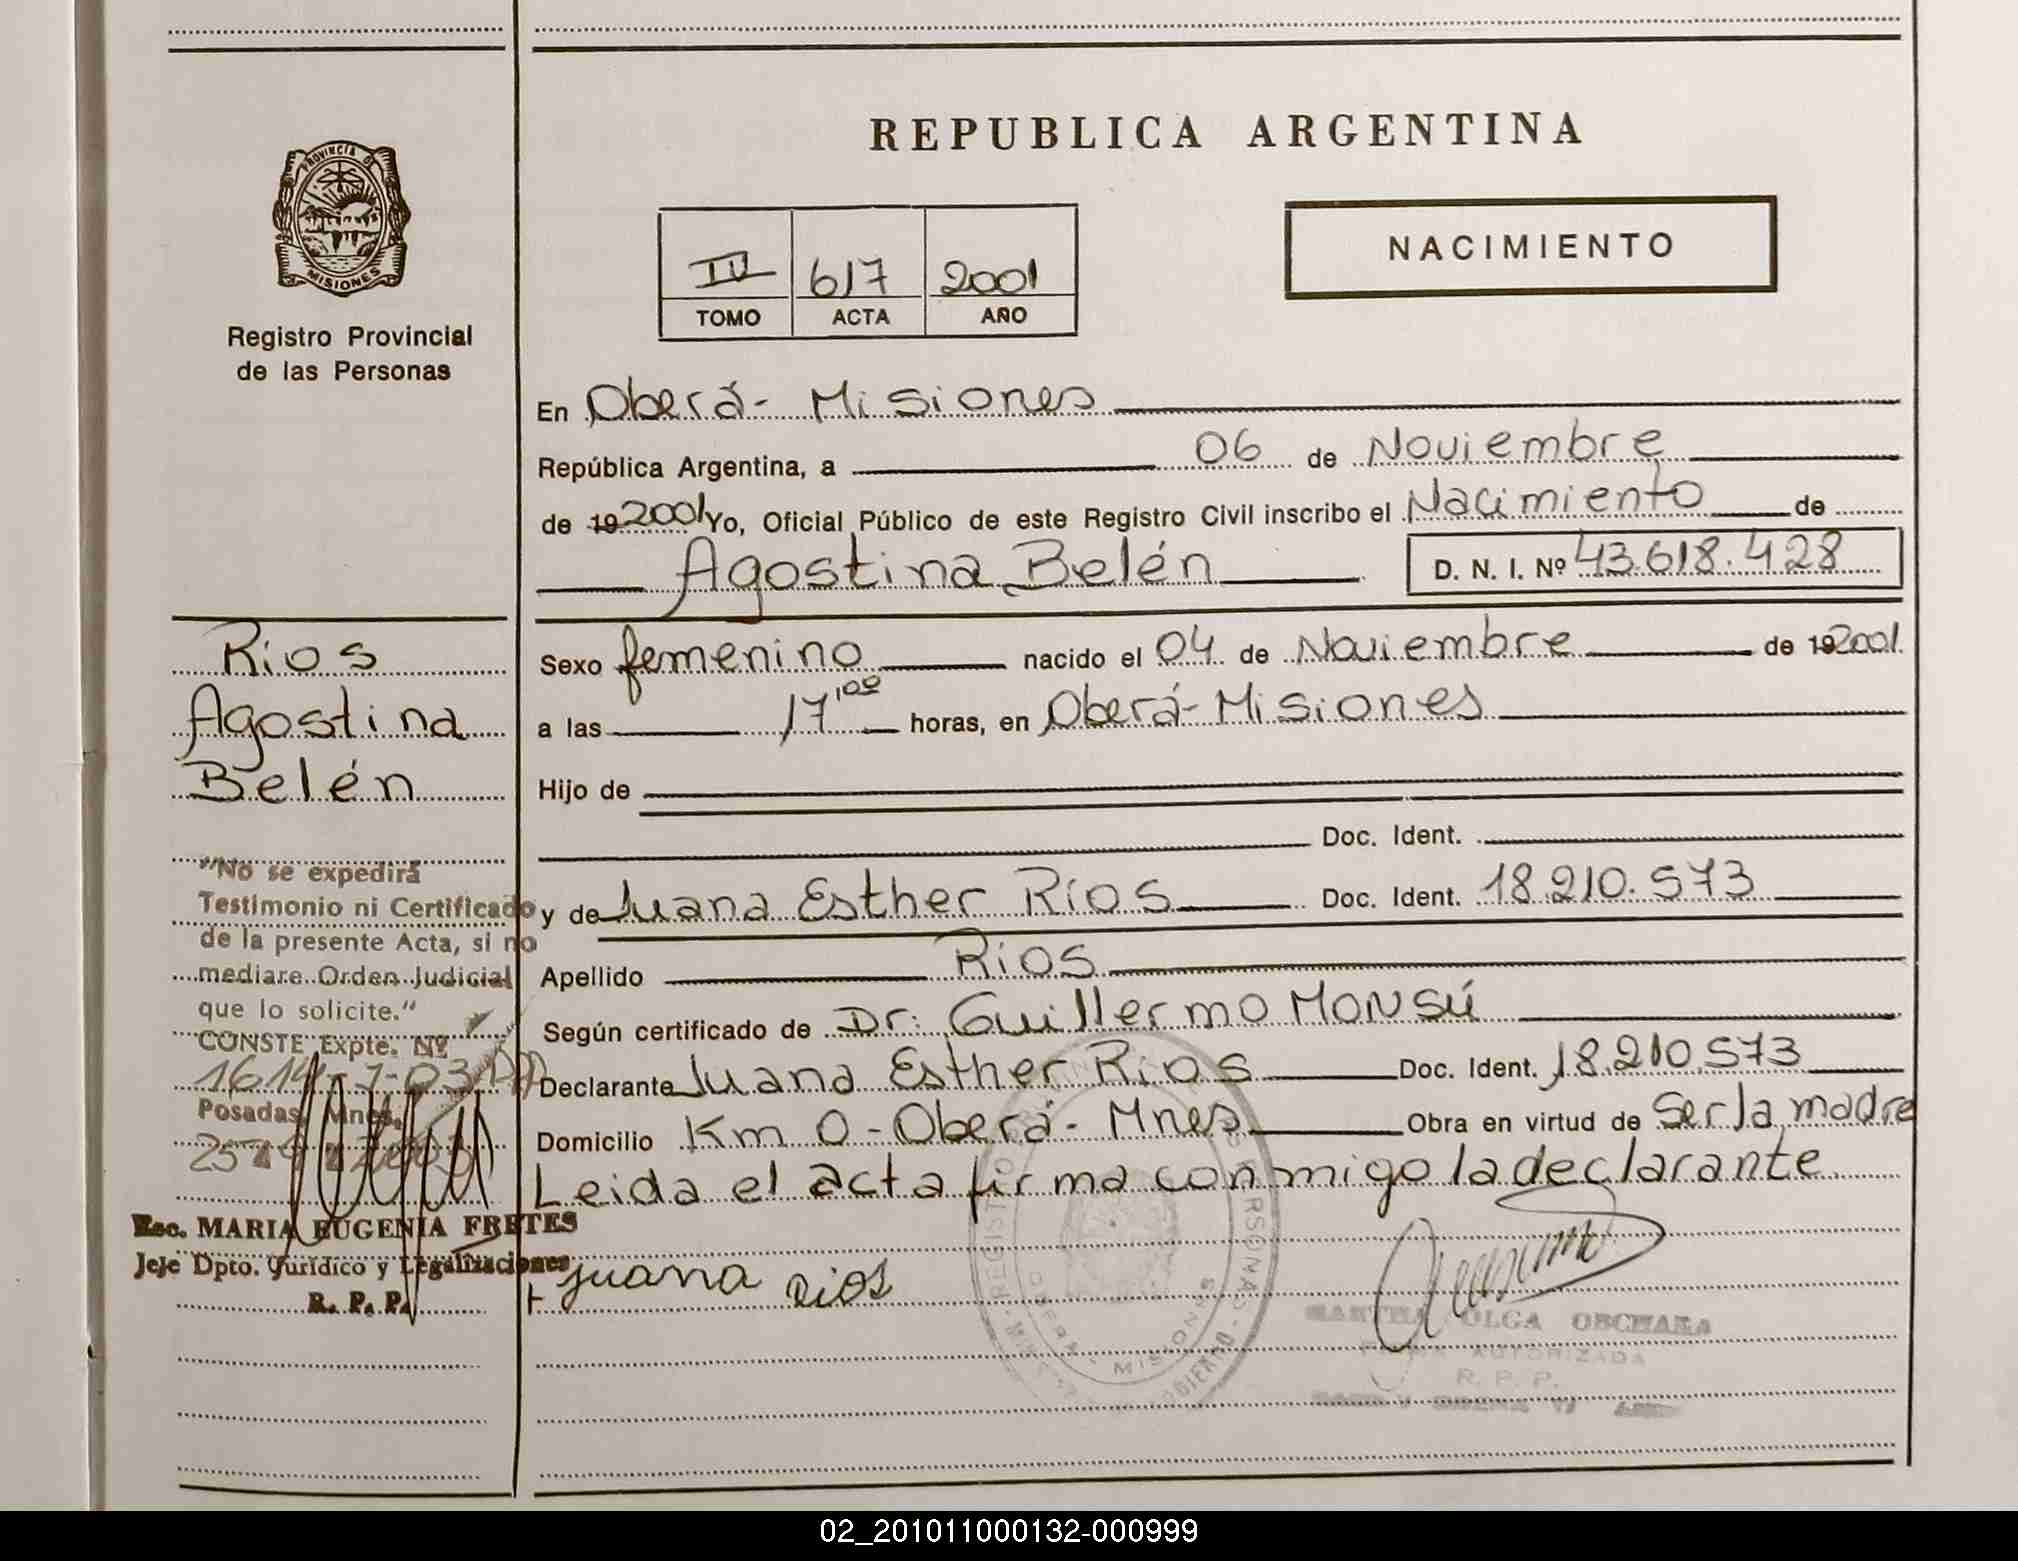 REPUBLICA ARGENTINA
PROVINCIA DE
MISIONES
Registro Provincial
de las Personas
IV 617 2001
TOMO ACTA AÑO
NACIMIENTO
En Oberá - Misiones
República Argentina, a 06 de Noviembre
de 19 2001 Yo, Oficial Público de este Registro Civil inscribo el Nacimiento de
Agostina Belén D. N. I. Nº 43.618.428
Sexo femenino nacido el 04 de Noviembre de 19 2001
a las 17,00 horas, en Oberá - Misiones
Hijo de
Doc. Ident.
y de Juana Esther Ríos Doc. Ident. 18.210.573
Apellido Ríos
Según certificado de Dr: Guillermo MONSÚ
Declarante Juana Esther Ríos Doc. Ident. 18.210.573
Domicilio Km 0 - Oberá - Mnes Obra en virtud de Ser la madre
Leida el acta firma conmigo la declarante
juana Rios
MARTHA OLGA OBCHARA
FIRMA AUTORIZADA
R. P. P.
OBERA - MISIONES
Rios
Agostina
Belén
"No se expedirá
Testimonio ni Certificado
de la presente Acta, si no
mediare Orden Judicial
que lo solicite."
CONSTE Expte. Nº
1614-7-03
Posadas, Mnes.
Esc. MARIA EUGENIA FRETES
Jefe Dpto. Jurídico y Legalizaciones
R. P. P.
02_201011000132-000999